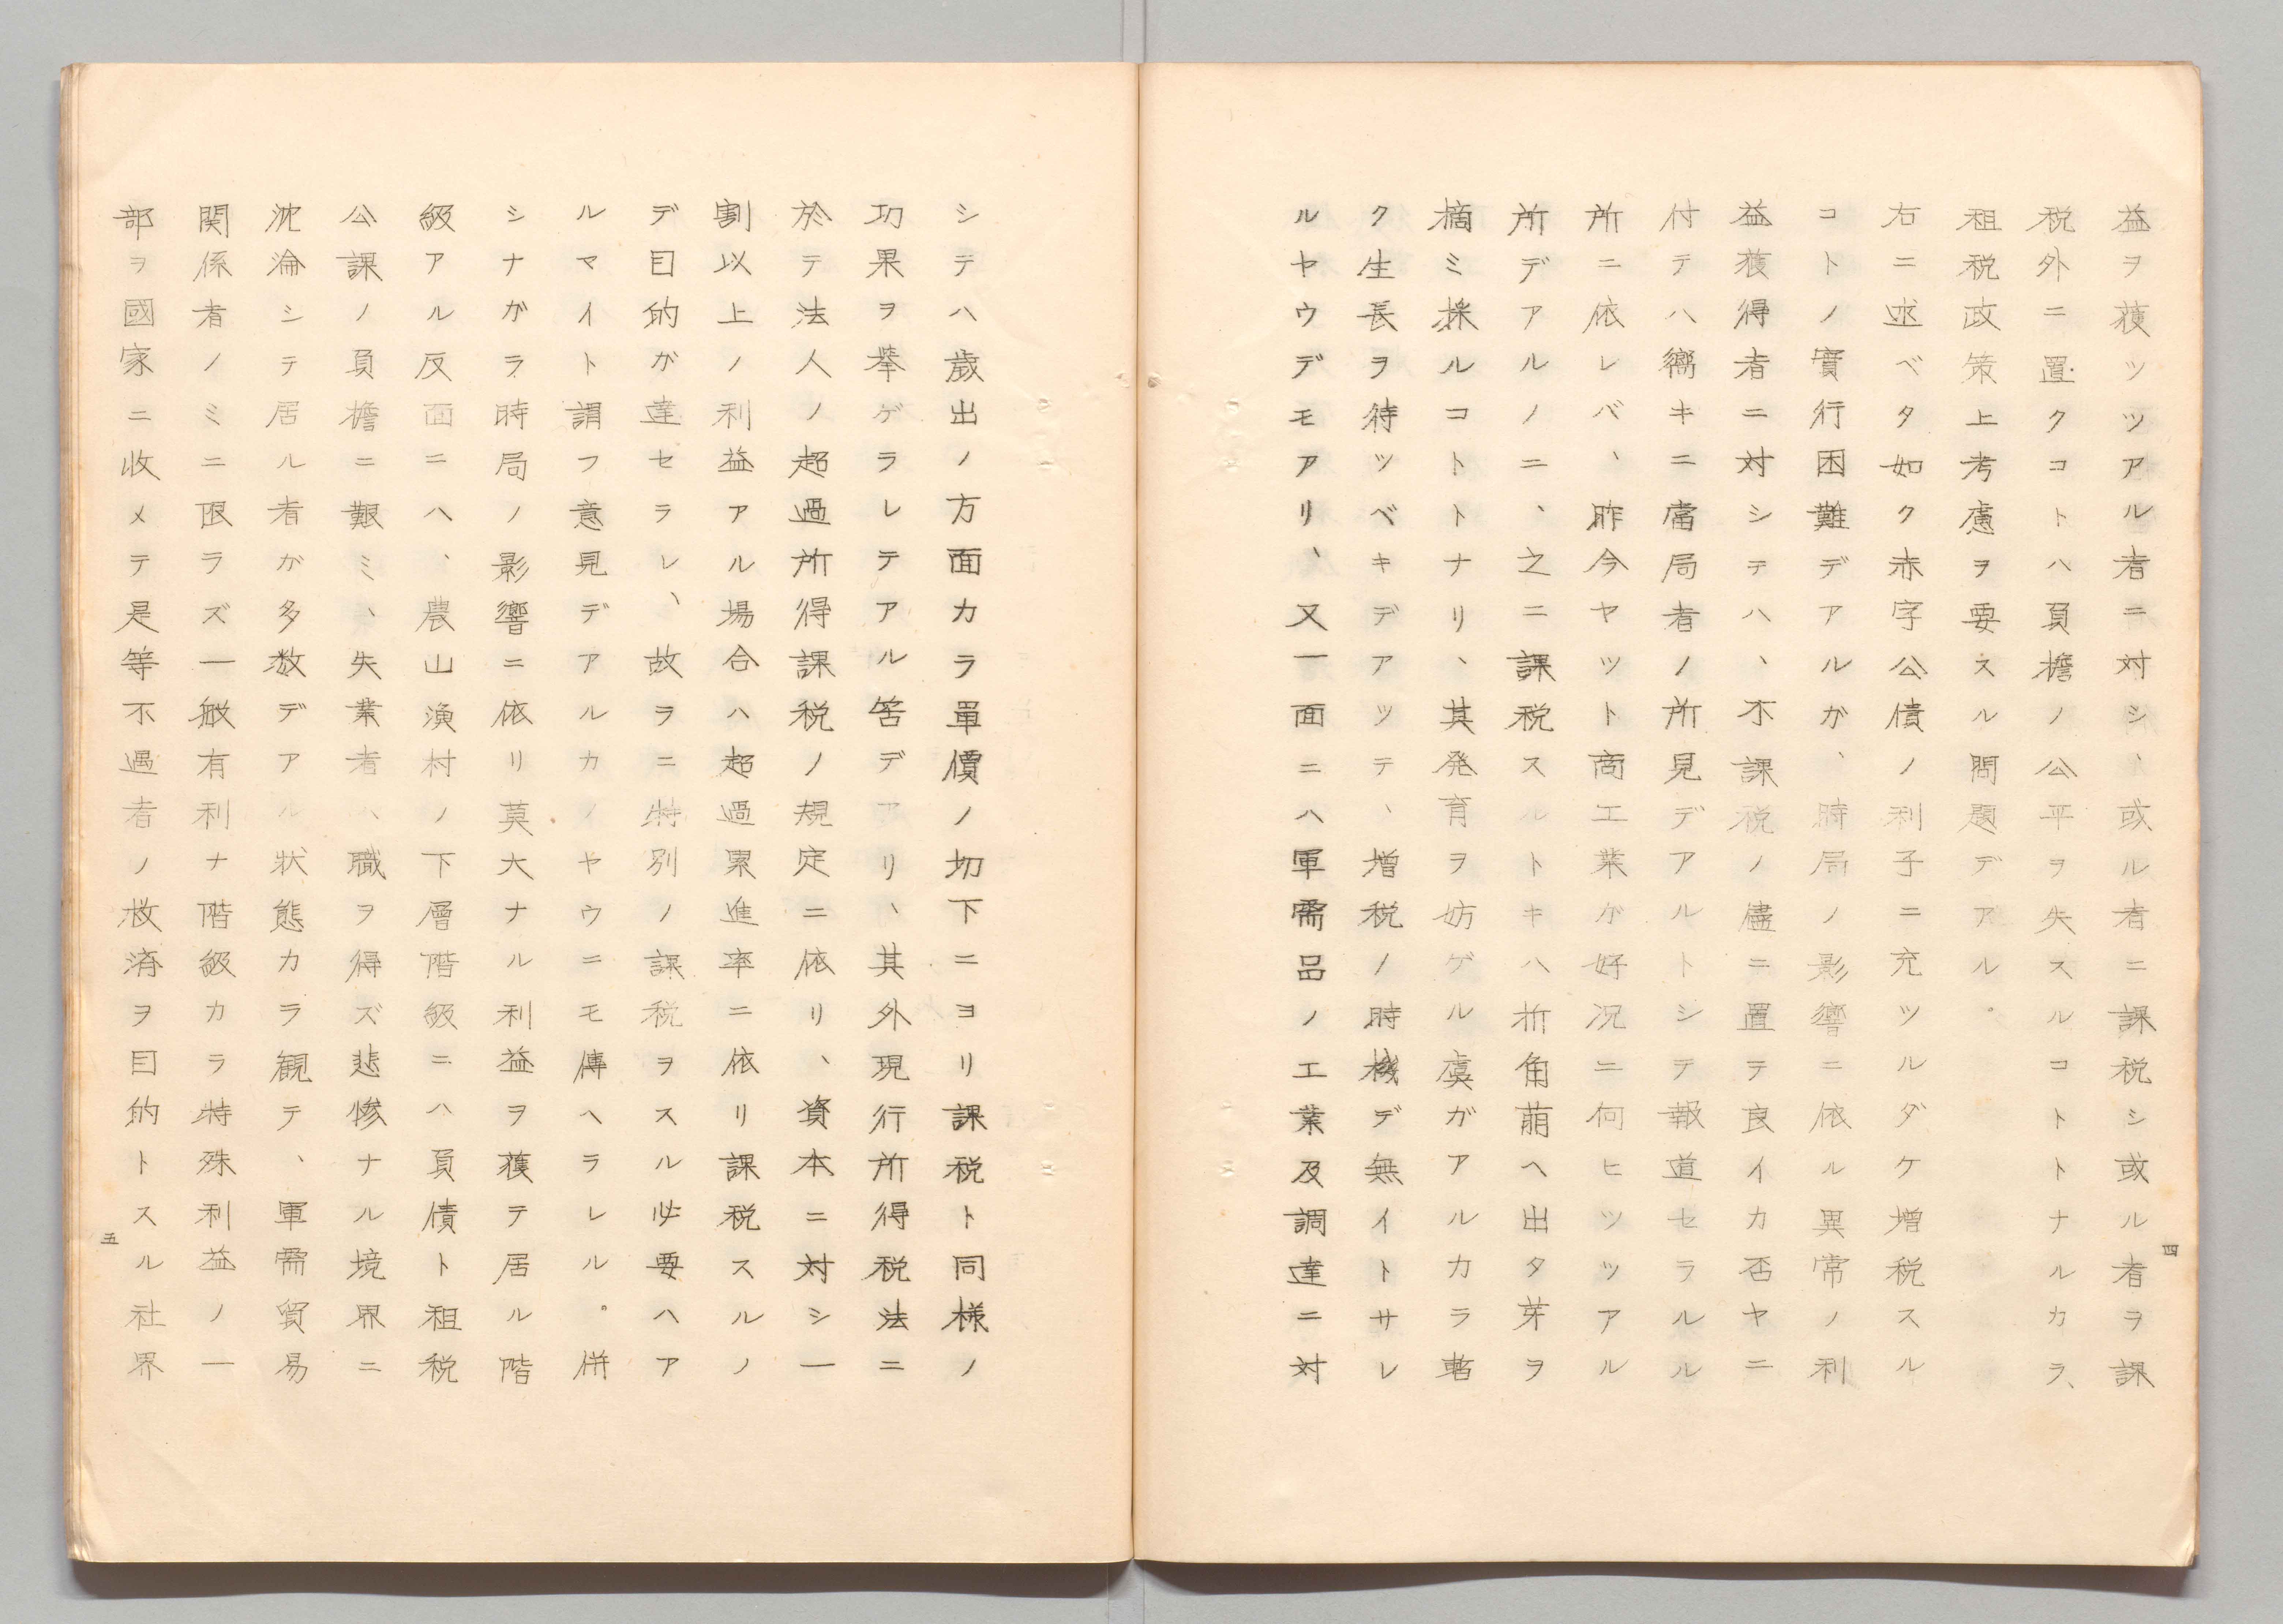 益ヲ獲ツツアル者ニ対シ、或ル者ニ課税シ或ル者ヲ課
税外ニ置クコトハ負檐ノ公平ヲ失スルコトトナルカラ、
租税政策上考慮ヲ要スル問題デアル。
右ニ述ベタ如ク赤字公債ノ利子ニ充ツルダケ増税スル
コトノ實行困難デアルガ、時局ノ影響ニ依ル異常ノ利
益獲得者ニ対シテハ、不課税ノ儘ニ置テ良イカ否ヤニ
付テハ嚮キニ當局者ノ所見デアルトシテ報道セラルル
所ニ依レバ、昨今ヤット商工業ガ好況ニ向ヒツツアル
所デアルノニ、之ニ課税スルトキハ折角萠ヘ出タ芽ヲ
摘ミ採ルコトトナリ、其発育ヲ妨ゲル虞ガアルカラ暫
ク生長ヲ待ツベキデアッテ、増税ノ時機デ無イトサレ
ルヤウデモアリ、又一面ニハ軍需品ノ工業及調達ニ対
四
シテハ歳出ノ方面カラ單價ノ切下ニヨリ課税ト同様ノ
功果ヲ挙ゲラレテアル筈デアリ、其外現行所得税法ニ
於テ法人ノ超過所得課税ノ規定ニ依リ、資本ニ対シ一
割以上ノ利益アル場合ハ超過累進率ニ依リ課税スルノ
デ目的ガ達セラレ、故ラニ特別ノ課税ヲスル必要ハア
ルマイト謂フ意見デアルカノヤウニモ傳ヘラレル。併
シナガラ時局ノ影響ニ依リ莫大ナル利益ヲ獲テ居ル階
級アル反面ニハ、農山漁村ノ下層階級ニハ負債ト租税
公課ノ負檐ニ艱ミ、失業者ハ職ヲ得ズ悲惨ナル境界ニ
沈淪シテ居ル者ガ多数デアル状態カラ観テ、軍需貿易
関係者ノミニ限ラズ一般有利ナ階級カラ特殊利益ノ一
部ヲ國家ニ收メテ是等不遇者ノ救済ヲ目的トスル社界
五